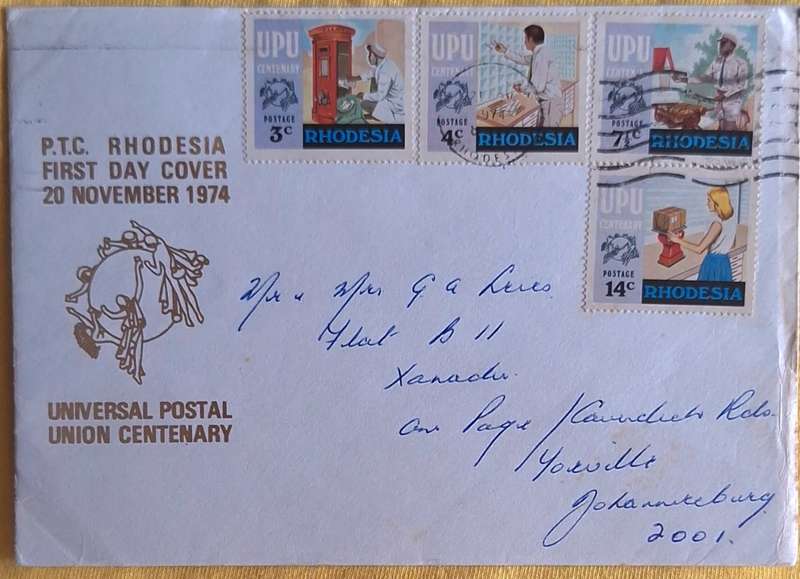 UPU
CENTENARY
POSTAGE
3c
RHODESIA
UPU
CENTENARY
POSTAGE
4c
RHODESIA
UPU
CENTENARY
POSTAGE
7½c
RHODESIA
UPU
CENTENARY
POSTAGE
14c
RHODESIA
P.T.C. RHODESIA
FIRST DAY COVER
20 NOVEMBER 1974
UNIVERSAL POSTAL
UNION CENTENARY
Mr & Mrs G A
Flat B 11
Xanadu
Cnr Page / Cavendish Rds
Yeoville
Johannesburg
2001.